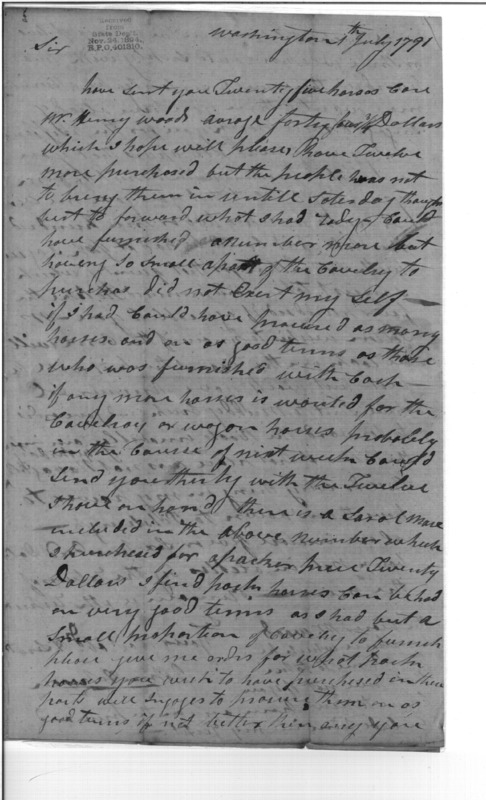 Received
from
State Dept.
Nov. 24, 1894.
R.P.O. 401310.
Washington 1th July 1791
Sir
have sent you Twenty five horses Care
Mr. Henry woods avrage forty Dollars
which I hope will please, I have Twelve
more purchased but the people was not
to bring them in untill Saterday thought
best to forward what I had redey Could
have furnished a number more but
having So Small a part of the Cavelry to
purchas did not Exert my Self —
if I had Could have procured as many
horses and on as good terms as those
who was furnished with Cash —
if any more horses is wanted for the
Cavelray or wagon horses probably
in the Course of nixt week Could
Send you thirty with the Twelve
I have on hand there is a Sorol mare
included in the above number which
I purchesed for a packer price Twenty
Dollars I find pack horses Can be had
on very good terms as I had but a
Small proportion of Cavelry to furnish
please give me orders for what pack
horses you wish to have purchesed in these
parts will Ingage to procure them on as
good terms if not better then any you